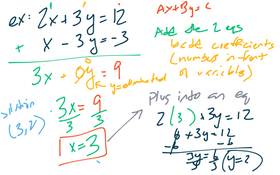 ex: 2x + 3y = 12
+ x - 3y = -3
3x + 0y = 9
y = eliminated
3x/3 = 9/3
x = 3
solution
(3,2)
Ax + By = C
Add the 2 eqs
coefficients
(number in front
of variables)
Plug into an eq
2(3) + 3y = 12
6 + 3y = 12
-6 -6
3y/3 = 6/3 (y=2)